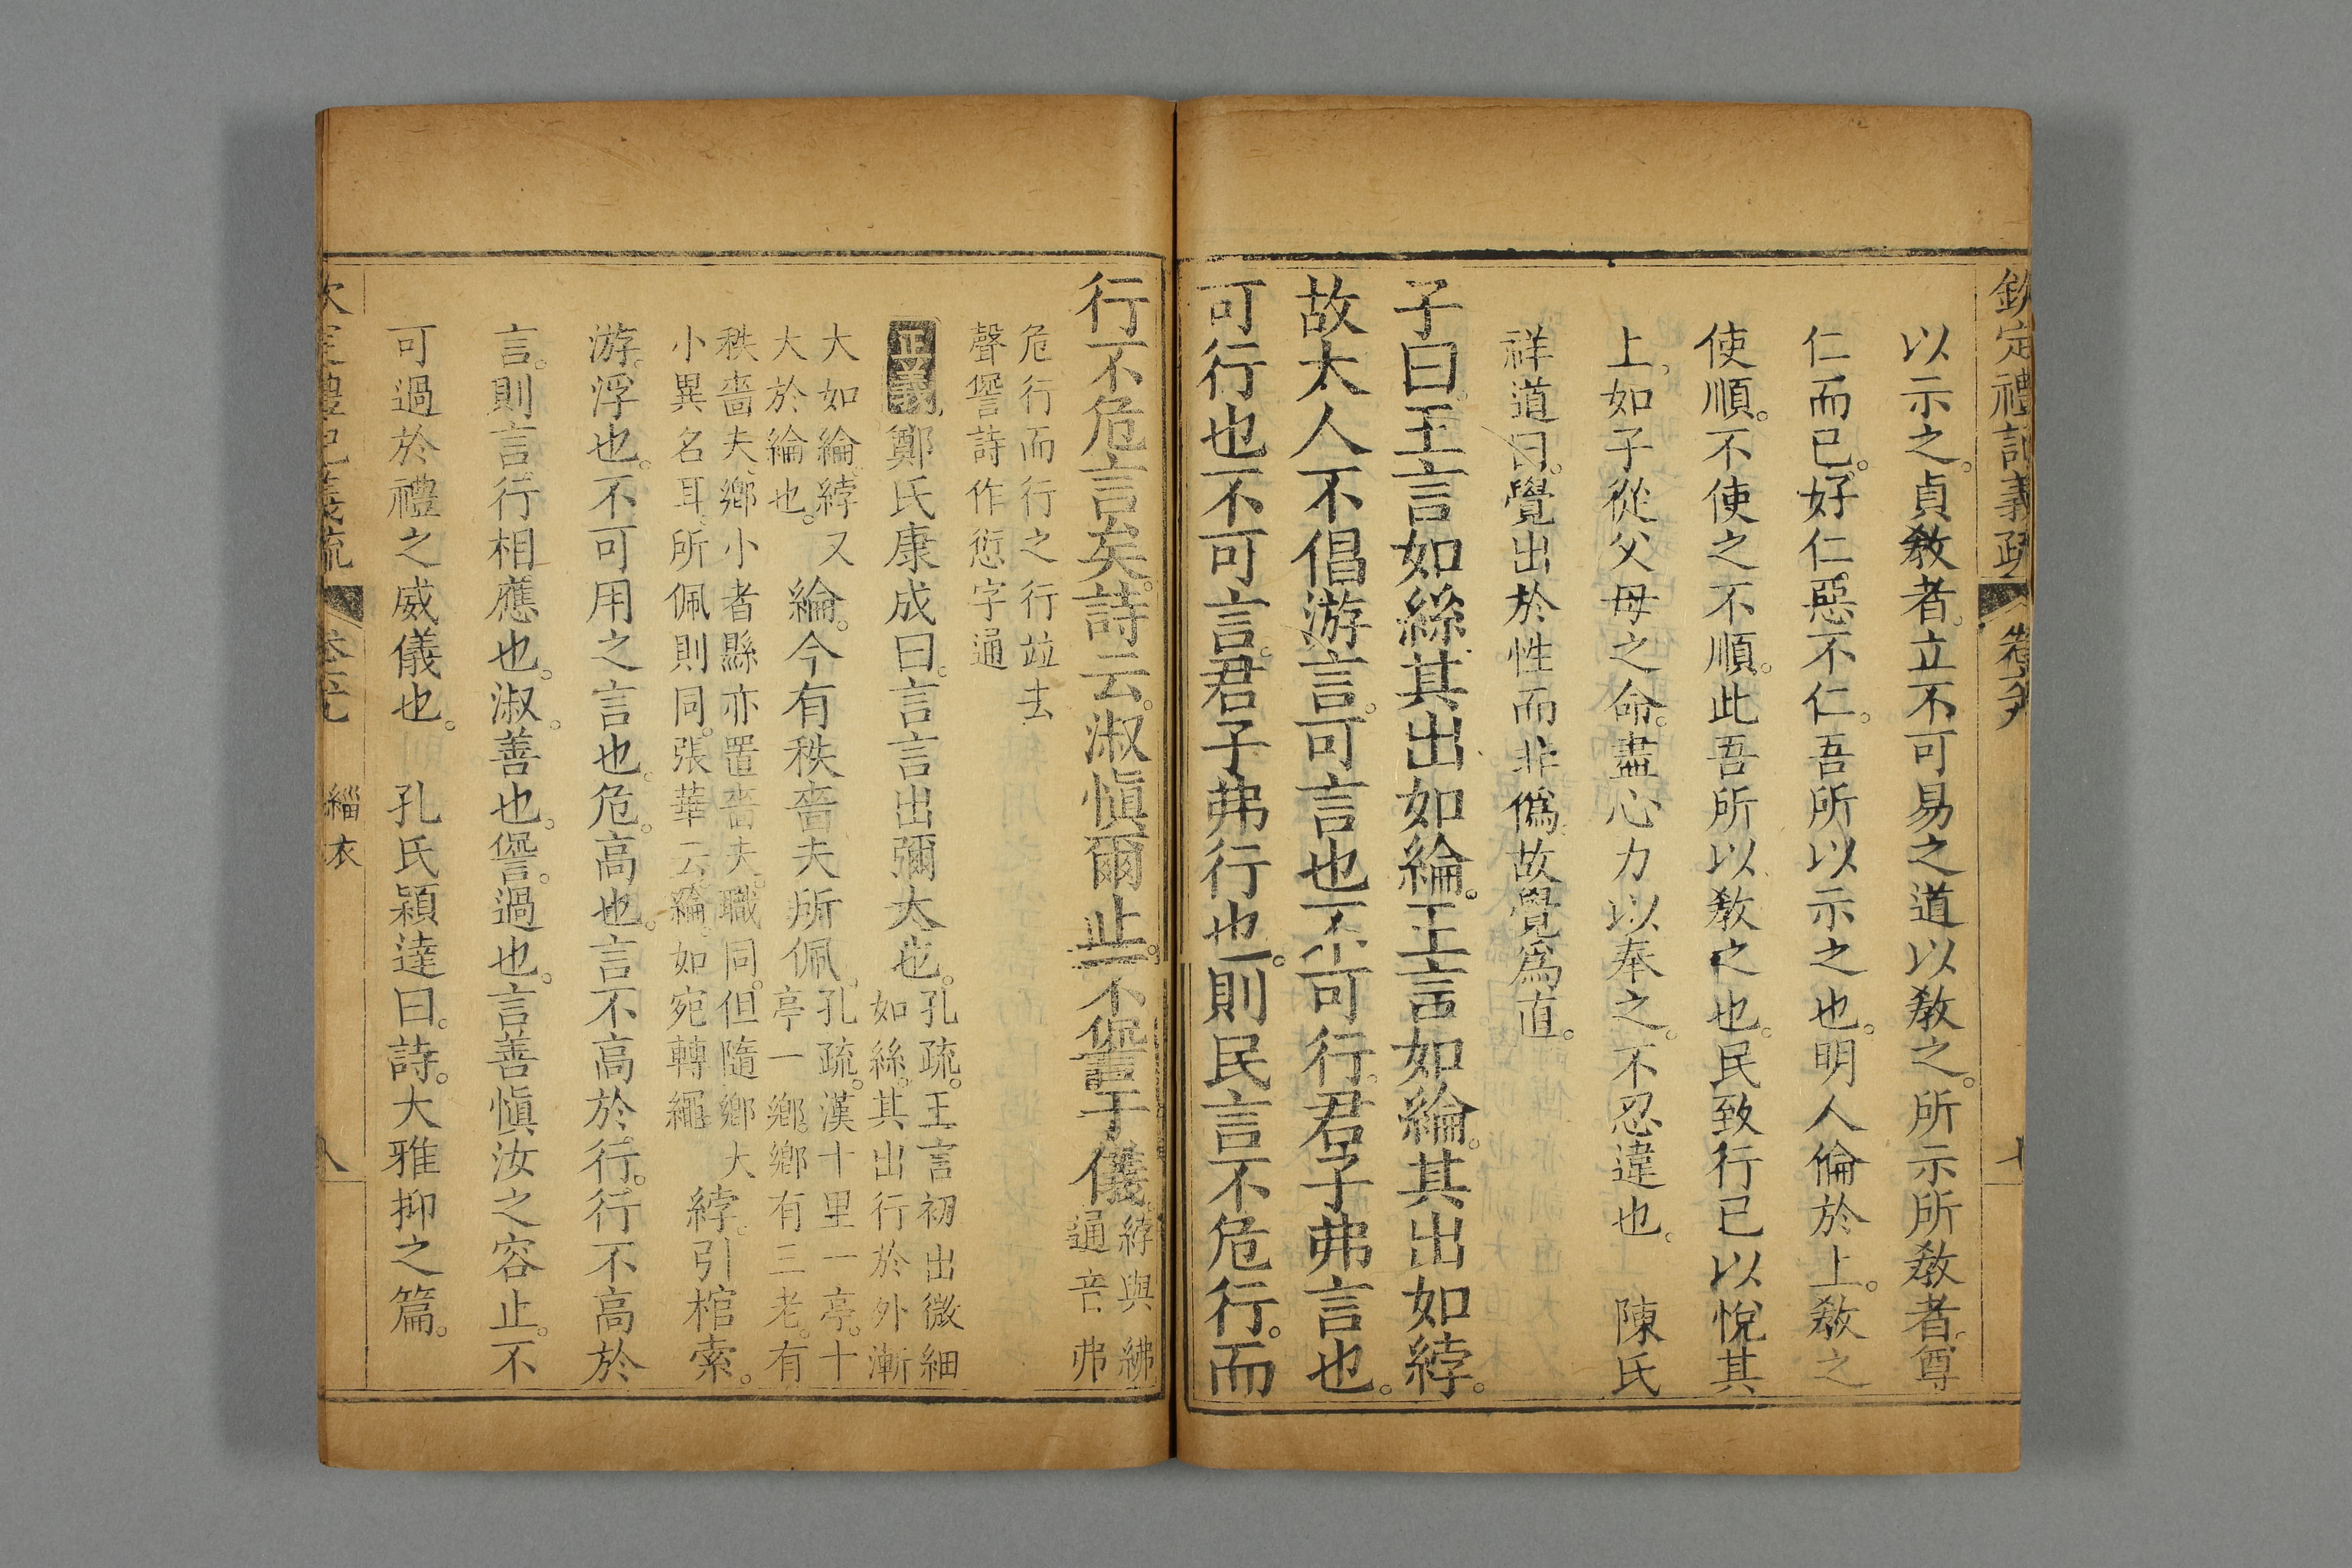 欽定禮記義疏
以示之。貞教者。立不可易之道以教之。所示所教者。尊
仁而已。好仁。惡不仁。吾所以示之也。明人倫於上。教之
使順。不使之不順。此吾所以教之也。民致行已以悅其
上。如子從父母之命。盡心力以奉之。不忍違也。 陳氏
祥道曰。覺出於性而非僞。故覺爲直。
子曰。王言如絲。其出如綸。王言如綸。其出如綍。
故大人不倡游言。可言也不可行。君子弗言也。
可行也不可言。君子弗行也。則民言不危行。而
行不危言矣。詩云。淑愼爾止。不諐于儀。
綍與紼
通音弗
危行而行之行竝去
聲諐詩作愆字通
正義 鄭氏康成曰。言言出彌大也。
孔疏。王言初出微細
如絲。其出行於外漸
大如綸。綍又
大於綸也。
綸。今有秩嗇夫所佩。
孔疏。漢十里一亭。十
亭一鄉。鄉有三老。有
秩嗇夫。鄉小者縣亦置嗇夫。職同。但隨鄉大
小異名耳。所佩則同。張華云。綸如宛轉繩。
綍。引棺索。
游。浮也。不可用之言也。危。高也。言不高於行。行不高於
言。則言行相應也。淑。善也。諐。過也。言善愼汝之容止。不
可過於禮之威儀也。 孔氏穎達曰。詩。大雅抑之篇。
緇衣